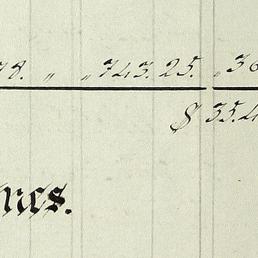 78. „ „ 743. 25. „ 36
$ 35.4
mes.